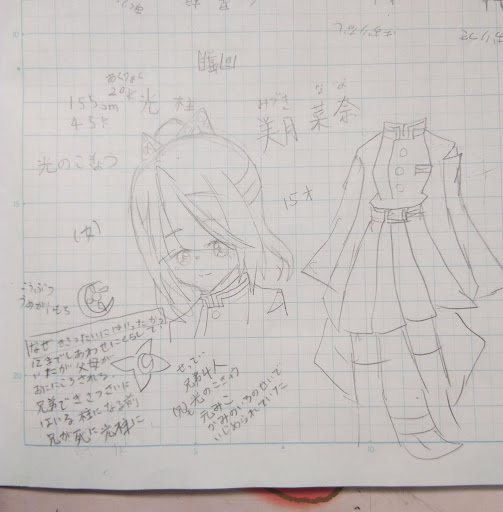 あくりょく
20K
155cm 光 柱
45k
みづき なな
美月 菜奈
光のこきゅう
15才
(女)
こうぶつ
なぜ きさつたいにはいったか
12までしあわせにくらして
いたが父母が
おににころされ
兄弟できさつたいに
はいる 柱になる前
兄が死に光柱に
せってい
兄弟4人
(兄も光のこきゅう
元みこ
かみのいろのせいで
いじめられていた